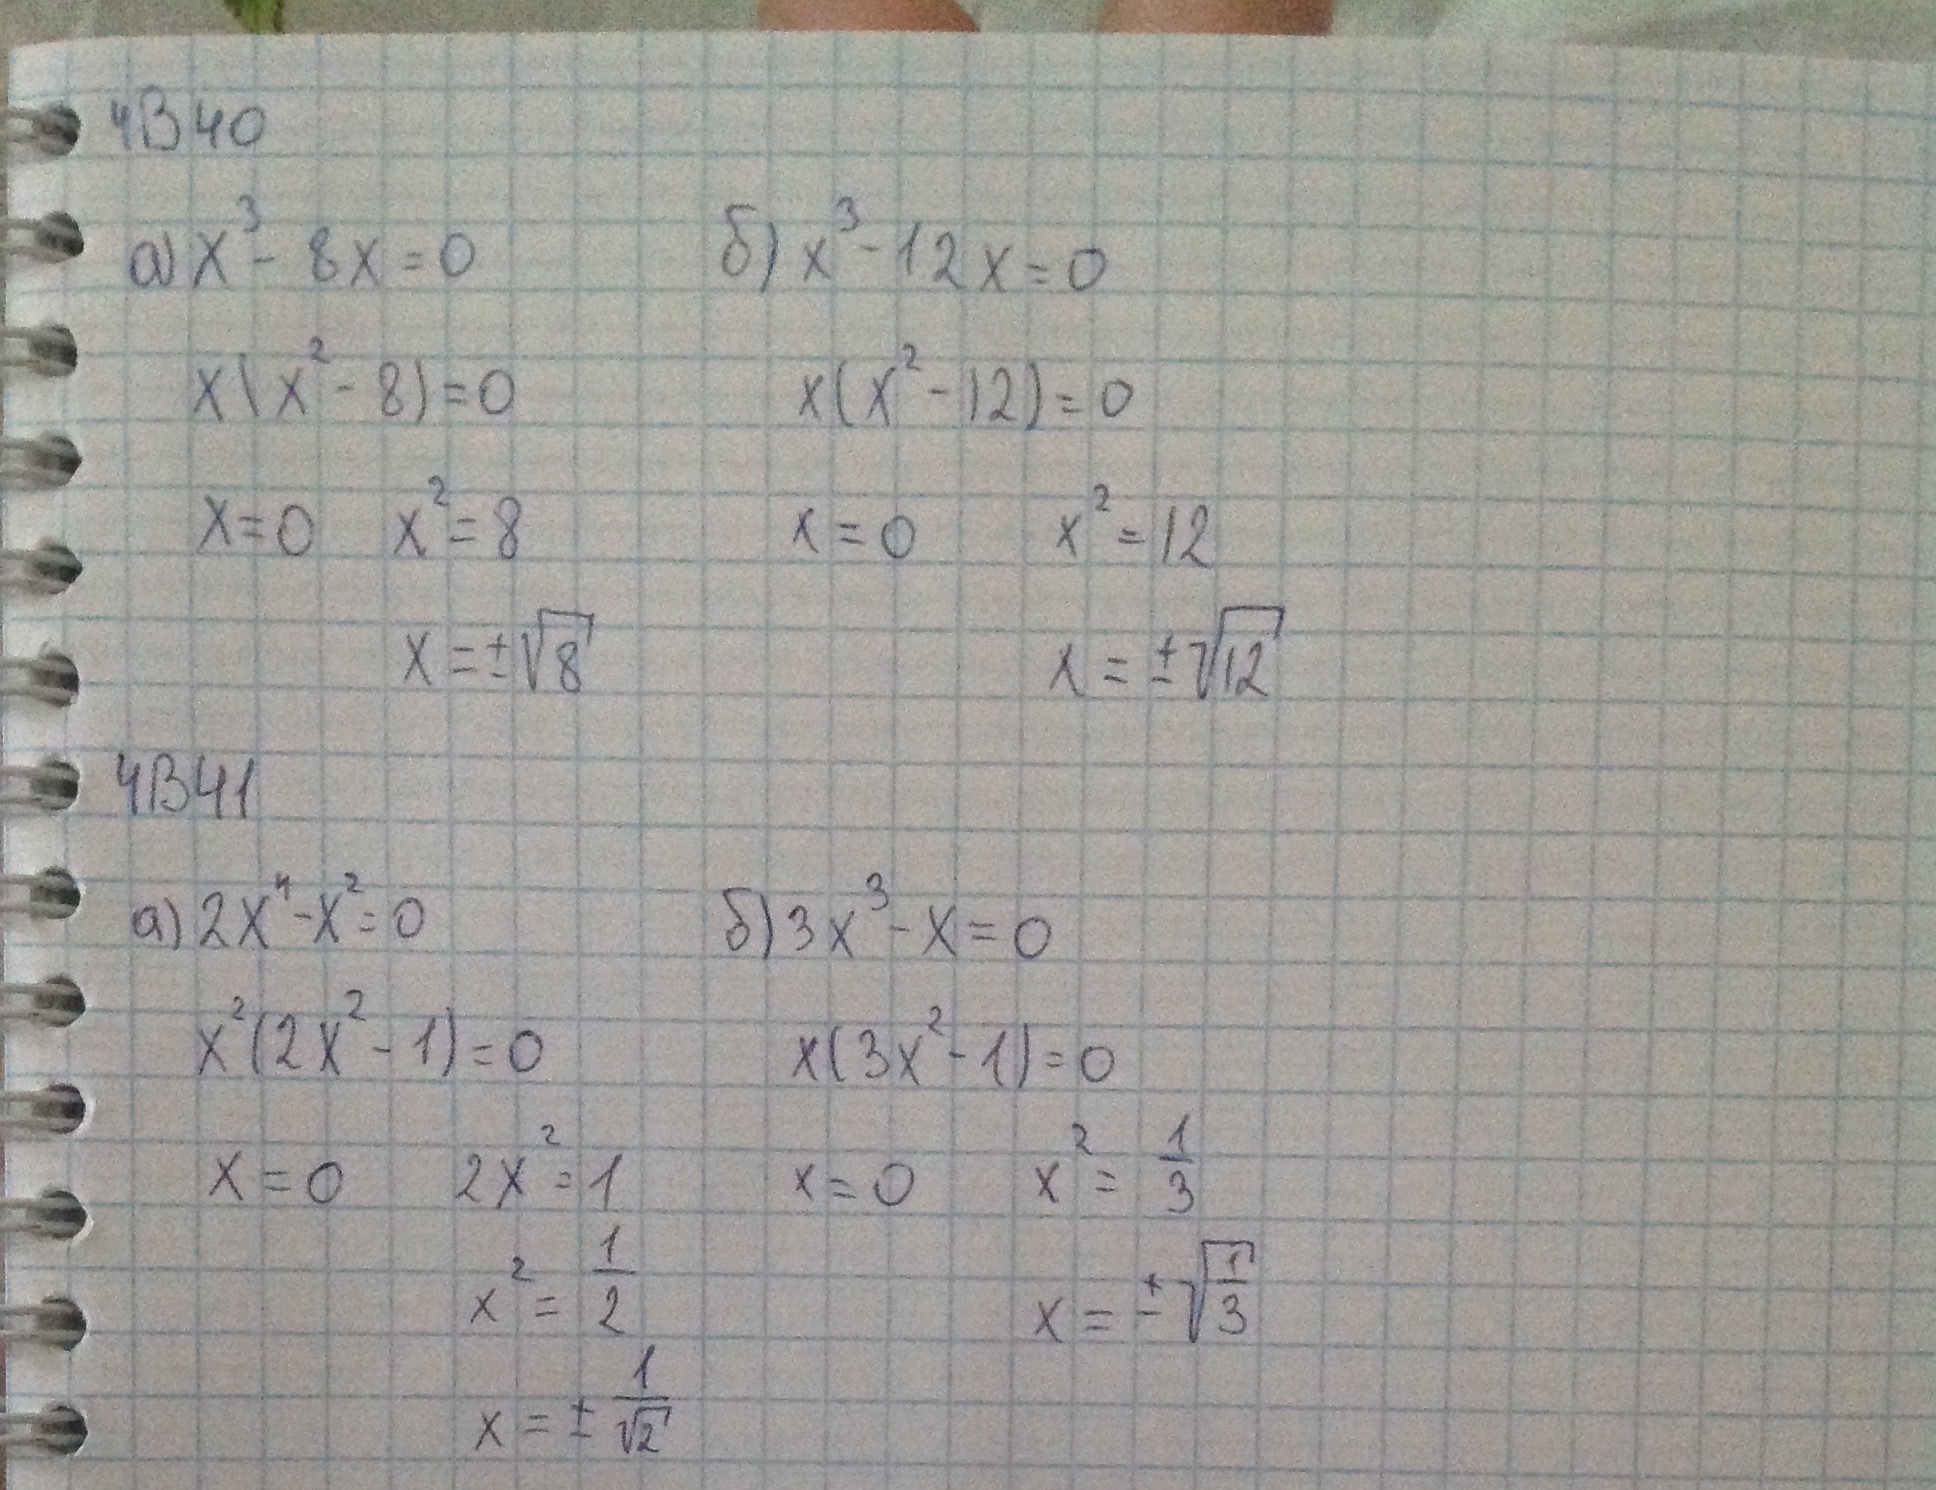 4В40
а) x³ - 8x = 0
x(x² - 8) = 0
x = 0   x² = 8
x = ±√8
б) x³ - 12x = 0
x(x² - 12) = 0
x = 0   x² = 12
x = ±√12
4В41
а) 2x⁴ - x² = 0
x²(2x² - 1) = 0
x = 0   2x² = 1
x² = 1/2
x = ± 1/√2
б) 3x³ - x = 0
x(3x² - 1) = 0
x = 0   x² = 1/3
x = ±√(1/3)